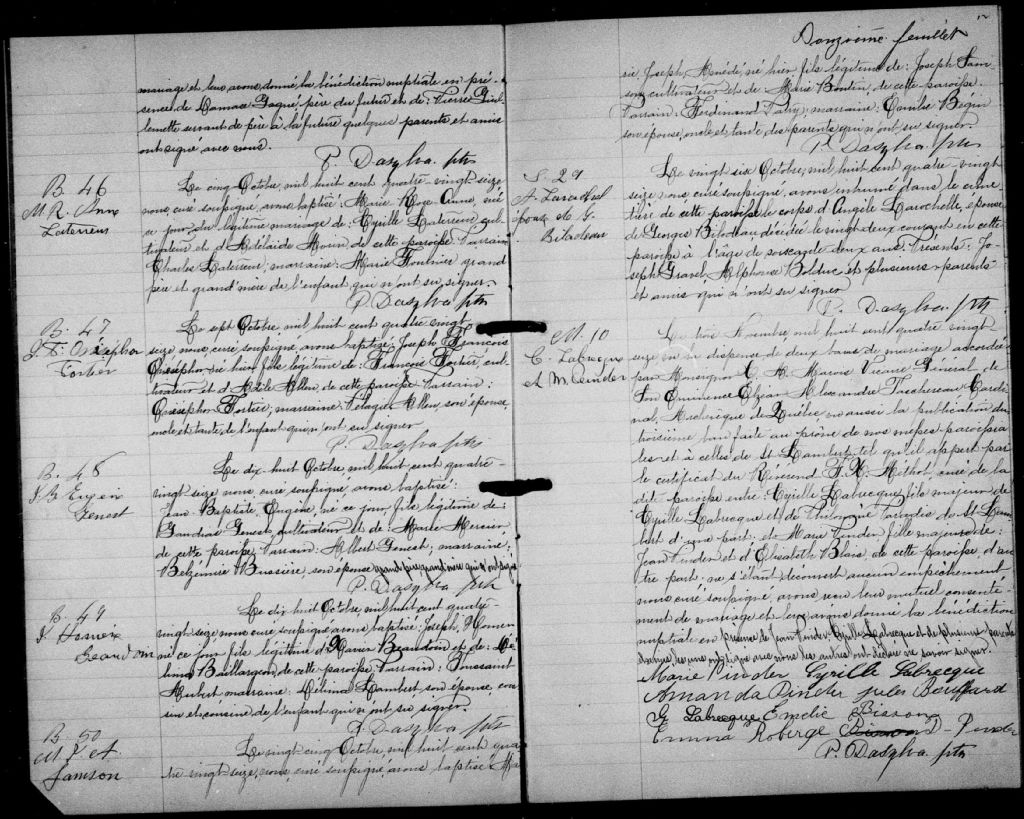 mariage et leur avons donné la bénédiction nuptiale en pré-
sence de Damase Gagné, père du futur et de: Pierre Guil-
lemette servant de père à la future quelques parents et amis
ont signé avec nous.
P. Dasylva ptr
B. 46
M. R. Anna
Laterreur
Le cinq Octobre, mil huit cent quatre-vingt seize
nous, curé soussigné, avons baptisé: Marie Rose Anna, née
ce jour du légitime mariage de: Cyrille Laterreur, cul-
tivateur et d'Adélaide Morin de cette paroisse. Parrain
Charles Laterreur; marraine: Marie Fournier grand
père et grand'mère de l'enfant qui n'ont su signer.
P. Dasylva ptr
B. 47
J. F. Onésiphor
Fortier
Le sept Octobre mil huit cent quatre vingt
seize nous, curé soussigné, avons baptisé: Joseph François
Onesiphor né hier fils légitime de: François Fortier, cul-
tivateur et d'Adèle Allen, de cette paroisse. Parrain:
Onesiphor Fortier; marraine: Pélagie Allen, son épouse,
oncle et tante, de l'enfant, qui n'ont su signer
P. Dasylva ptr
B. 48
J. B. Eugèn
Genest
Le dix huit Octobre, mil huit cent quatre-
vingt seize nous, curé soussigné, avons baptisé:
Jean Baptiste Eugène, né ce jour, fils légitime de:
Gaudias Genest, cultivateur et de: Marie Mercier
de cette paroisse. Parrain: Albert Genest; marraine:
Belzemire Bussière, son épouse grand père grand'mère qui n'ont su signer
P. Dasylva ptr
B. 49
Beaudoin
Le dix huit Octobre, mil huit cent quatre-
vingt seize nous curé soussigné avons baptisé: Joseph,
né ce jour fils légitime d'Xavier Beaudoin et de: Mé-
lina Baillargeon, de cette paroisse. Parrain: Toussaint
Aubert marraine: Délima Lambert son épouse, cou-
sin et cousine de l'enfant qui n'ont su signer.
P. Dasylva ptr
B. 50
Samson
Le vingt cinq Octobre mil huit cent qua-
tre vingt seize, nous, curé soussigné avons baptisé
Douzième feuillet
12
Joseph, Amédé, né hier fils légitime de: Joseph Sam-
son, cultivateur et de: Marie Boutin, de cette paroisse.
Parrain: Ferdinand marraine: Bégin
son épouse, oncle et tante des parents qui n'ont su signer.
P. Dasylva ptr
S. 29
A. Larochel
épouse de G.
Bilodeau
Le vingt six Octobre, mil huit cent quatre-vingt
seize nous, curé soussigné, avons inhumé dans le cime-
tière de cette paroisse le corps d'Angèle Larochelle, épouse
de Georges Bilodeau, décédée le vingt deux courant en cette
paroisse à l'âge de soixante deux ans. Présents: Jo-
seph Alphonse Bolduc et plusieurs parents
et amis qui n'ont su signer
P. Dasylva. ptr
M. 10
C. Labrecque
et M. Pinder
Le trois Novembre mil huit cent quatre vingt
seize vu la dispense de deux bans de mariage accordée
par Monsignor C. A. Marois Vicaire Général de
Son Eminence Elzéar Alexandre Taschereau Cardi-
nal, Archevêque de Québec vu aussi la publication du
troisième ban faite au prône de nos messes paroissia-
les et à celles de St Lambert tel qu'il appert par
le certificat du Révérend F. X. Méthot, curé de la
dite paroisse entre: Cyrille Labrecque, fils majeur de
Cyrille Labrecque et de Philomène Paradis de St Lam-
bert d'une part et Marie Pinder fille majeure de:
Jean Pinder et d'Elisabeth Blais de cette paroisse, d'au-
tre part; ne s'étant découvert aucun empêchement
nous curé soussigné avons reçu leur mutuel consente-
ment de mariage et leur avons donné la bénédiction
nuptiale en présence de Jean Pinder, Cyrille Labrecque et de plusieurs parents
dont les uns ont signé avec nous les autres ont déclaré ne savoir signer.
Marie Pinder Cyrille Labrecque
Amanda Pinder Jules Bouffard
G Labrecque Emelie Bisson
Emma Roberge Pinder
P. Dasylva ptr